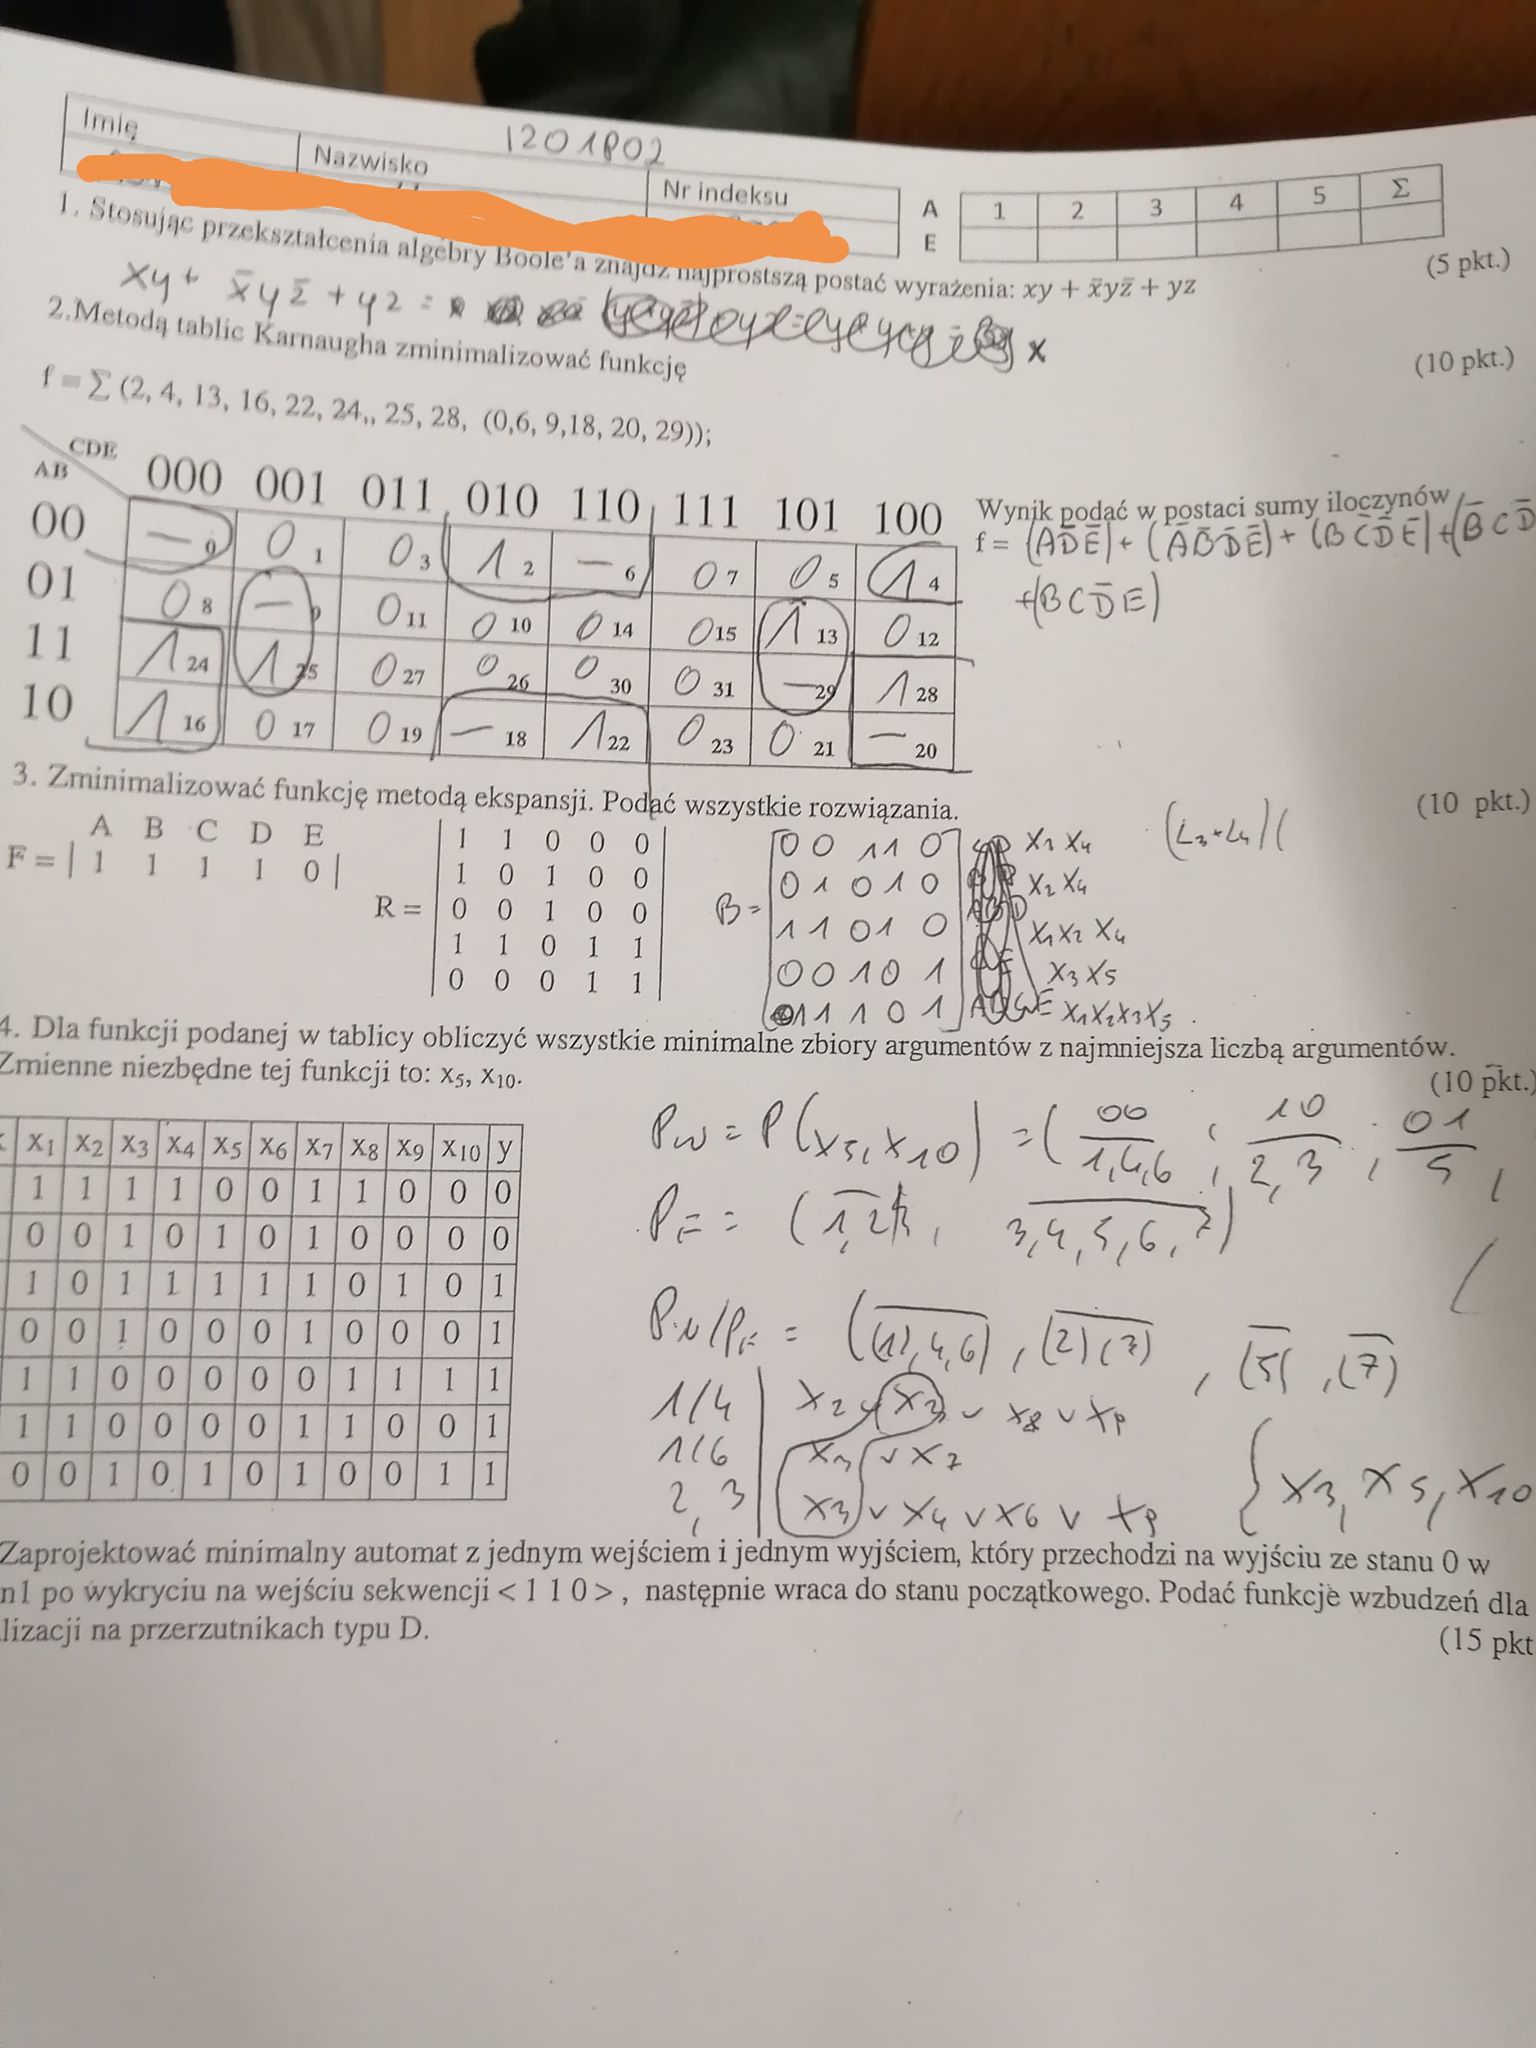 1201802
Imię Nazwisko Nr indeksu
A 1 2 3 4 5 Σ
E
1. Stosując przekształcenia algebry Boole'a znajdź najprostszą postać wyrażenia: xy + x̄yz̄ + yz (5 pkt.)
xy + x̄yz̄ + yz =
x
2.Metodą tablic Karnaugha zminimalizować funkcję (10 pkt.)
f = Σ (2, 4, 13, 16, 22, 24,, 25, 28, (0,6, 9,18, 20, 29));
CDE
AB 000 001 011 010 110 111 101 100
00 — 0 0 1 0 3 1 2 — 6 0 7 0 5 1 4
01 0 8 — 9 0 11 0 10 0 14 0 15 1 13 0 12
11 1 24 1 25 0 27 0 26 0 30 0 31 — 29 1 28
10 1 16 0 17 0 19 — 18 1 22 0 23 0 21 — 20
Wynik podać w postaci sumy iloczynów
f = (AD̄Ē) + (ĀB̄D̄Ē) + (BC̄D̄E) + (B̄CD̄
+(BCD̄E)
3. Zminimalizować funkcję metodą ekspansji. Podać wszystkie rozwiązania. (10 pkt.)
A B C D E
F = | 1 1 1 1 0 |
R =
1 1 0 0 0
1 0 1 0 0
0 0 1 0 0
1 1 0 1 1
0 0 0 1 1
B =
0 0 1 1 0 X3 X4
0 1 0 1 0 X2 X4
1 1 0 1 0 X1 X2 X4
0 0 1 0 1 X3 X5
1 1 1 0 1 X1X2X3X5
(L3+L4)(
4. Dla funkcji podanej w tablicy obliczyć wszystkie minimalne zbiory argumentów z najmniejsza liczbą argumentów.
Zmienne niezbędne tej funkcji to: x5, x10. (10 pkt.)
x1 x2 x3 x4 x5 x6 x7 x8 x9 x10 y
1 1 1 1 0 0 1 1 0 0 0
0 0 1 0 1 0 1 0 0 0 0
1 0 1 1 1 1 1 0 1 0 1
0 0 1 0 0 0 1 0 0 0 1
1 1 0 0 0 0 0 1 1 1 1
1 1 0 0 0 0 1 1 0 0 1
0 0 1 0 1 0 1 0 0 1 1
00 10 01
Pw = P(x5, x10) = ( 1,4,6 ; 2,3 ; 5 ,
PF = ( 1,2 , 3,4,5,6,7)
PN/PF = ((1),4,6) , (2)(3) , (5) , (7)
1/4 X2 v X3 v X8 v X9
1/6 X3 v X2
2, 3 X3 v X4 v X6 v X9
{X3, X5, X10
Zaprojektować minimalny automat z jednym wejściem i jednym wyjściem, który przechodzi na wyjściu ze stanu 0 w
n1 po wykryciu na wejściu sekwencji < 1 1 0 > , następnie wraca do stanu początkowego. Podać funkcje wzbudzeń dla
lizacji na przerzutnikach typu D. (15 pkt